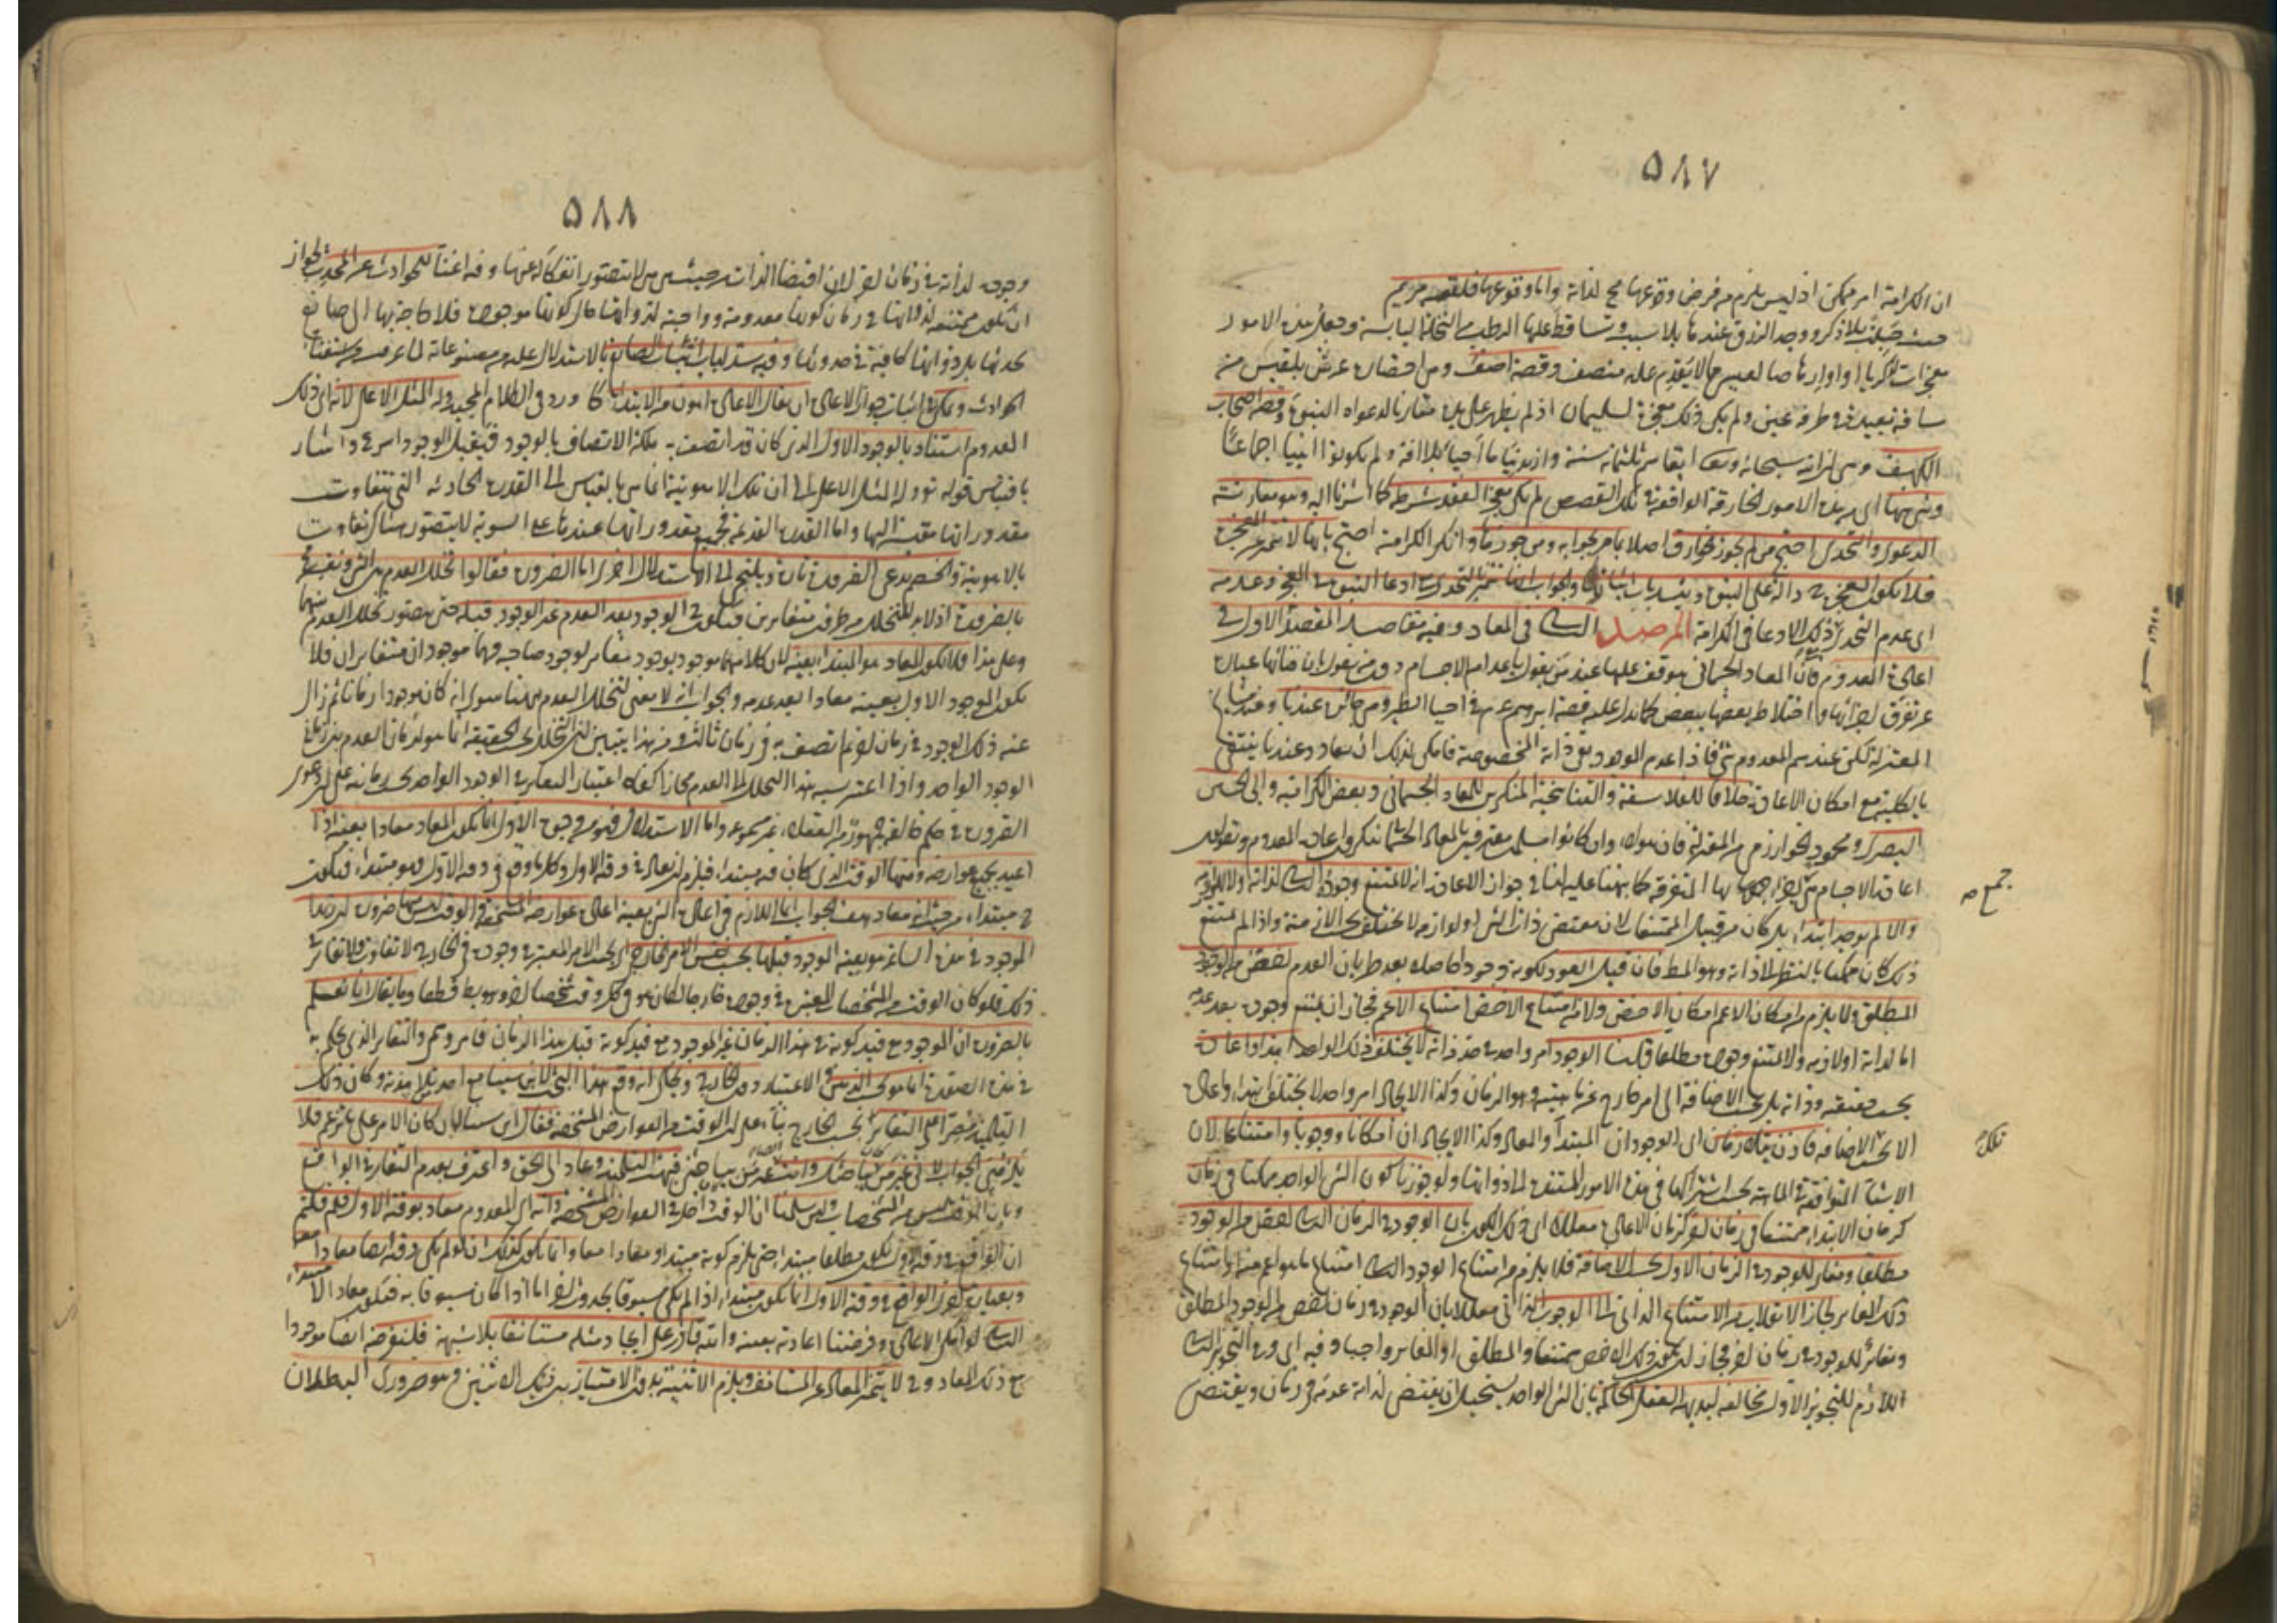 ٥٨٧
ان الكرامة امر ممكن اذ ليس يلزم من فرض وقوعها مح لذاته واما وقوعها فلقصة مريم
حيث حبلت بلا ذكر ووجد الرزق عندها بلا سبب وتساقط عليها الرطب من النخلة اليابسة وجعل هذه الامور
معجزات لزكريا او ارهاصا لعيسى مما لا يقدم عليه منصف وقصة اصف وهي احضاره عرش بلقيس من
مسافة بعيدة في طرفة عين ولم يكن ذلك معجزة لسليمان اذ لم يظهر على يده مقارنا لدعواه النبوة وقصة اصحاب
الكهف وهي ان الله سبحانه وتعالى ابقاهم ثلثمائة سنة وازيد نياما احياء بلا افة ولم يكونوا انبياء اجماعا
وشئ منها اى من هذه الامور الخارقة الواقعة في تلك القصص لم يكن معجزة لفقد شرطه كما اشرنا اليه وهو مقارنته
الدعوى والتحدى احتج من لم يجوز الخوارق اصلا بما مر بجوابه ومن جوزها وانكر الكرامة احتج بانها لا تتميز عن المعجزة
فلا تكون المعجزة ح دالة على النبوة وينسد باب اثباتها والجواب انها تتميز بالتحدى مع ادعاء النبوة في المعجزة وعدمه
اى عدم التحدى مع ذلك الادعاء في الكرامة المرصد الثانى في المعاد وفيه مقاصد المقصد الاول في
اعادة المعدوم فان المعاد الجسمانى يتوقف عليها عند من يقول باعدام الاجسام دون من يقول بان فنائها عبارة
عن تفرق اجزائها واختلاط بعضها ببعض كما تدل عليه قصة ابرهيم عم في احياء الطير وهى جائزة عندنا وعند مشايخ
المعتزلة لكن عندهم المعدوم شئ فاذا عدم الموجود بقى ذاته المخصوصة فامكن لذلك ان يعاد وعندنا ينتفى
بالكلية مع امكان الاعادة خلافا للفلاسفة والتناسخية المنكرين للمعاد الجسمانى وبعض الكرامية وابى الحسين
البصرى ومحمود الخوارزمى من المعتزلة فان هؤلاء وان كانوا مسلمين معترفين بالمعاد الجسمانى ينكرون اعادة المعدوم ويقولون
اعادة الاجسام هى جمع اجزائها المتفرقة كما نبهنا عليه لنا في جواز الاعادة انه لا يمتنع وجوده الثانى لذاته ولا للوازمه
جمع صح
والا لم يوجد ابتداء بل كان من قبيل الممتنعات لان مقتضى ذات الشئ او لوازمه لا يختلف بحسب الازمنة واذا لم يمتنع
ذلك كان ممكنا بالنظر الى ذاته وهو المط فان قيل العود لكونه وجودا حاصلا بعد طريان العدم اخص من الوجود
المطلق ولا يلزم من امكان الاعم امكان الاخص ولا من امتناع الاخص امتناع الاعم فجاز ان يمتنع وجوده بعد عدمه
اما لذاته او لازمه ولا يمتنع وجوده مطلقا قلنا الوجود امر واحد في حد ذاته لا يختلف ذلك الواحد ابتداء واعادة
بحسب حقيقته وذاته بل بحسب الاضافة الى امر خارج عن ماهيته وهو الزمان وكذا الايجاد امر واحد لا يختلف ابتداء واعادة
الا بحسب الاضافة فاذن يتلازمان اى الوجودان المبتدأ والمعاد وكذا الايجادان امكانا ووجوبا وامتناعا لان
تلك
الاشياء المتوافقة في الماهية يجب اشتراكها في هذه الامور المستندة الى ذواتها ولو جوزنا كون الشئ الواحد ممكنا في زمان
كزمان الابتداء ممتنعا في زمان اخر كزمان الاعادة معللا اى ذلك الكون بان الوجود في الزمان الثانى اخص من الوجود
مطلقا ومغاير للوجود في الزمان الاول بحسب الاضافة فلا يلزم من امتناع الوجود الثانى امتناع ما هو اعم منه او امتناع
ذلك المغاير لجاز الانقلاب من الامتناع الذاتى الى الوجوب الذاتى معللا بان الوجود في زمان اخص من الوجود المطلق
ومغاير للوجود في زمان اخر فجاز ان يكون ذلك الاخص ممتنعا والمطلق او المغاير واجبا وفيه اى وفي التجويز الثانى
اللازم للتجويز الاول مخالفة لبديهة العقل الحاكمة بان الشئ الواحد يستحيل ان يقتضى لذاته عدمه في زمان ويقتضى
٥٨٨
وجوده لذاته في زمان اخر لان اقتضاء الذات من حيث هى لا يتصور انفكاكه عنها وفيه اغناء للحوادث عن المحدث لجواز
ان تكون ممتنعة لذواتها في زمان كونها معدومة وواجبة لذواتها حال كونها موجودة فلا حاجة بها الى صانع
يحدثها بل ذواتها كافية في حدوثها وفيه سد لباب اثبات الصانع بالاستدلال عليه بمصنوعاته لما عرفت من استغناء
الحوادث ويمكن في اثبات جواز الاعادة ان يقال الاعادة اهون من الابتداء كما ورد في الكلام المجيد وله المثل الاعلى لانه اى ذلك
المعدوم استفاد بالوجود الاول الذى كان قد اتصف به ملكة الاتصاف بالوجود فيقبل الوجود اسرع واشار
باقتباس قوله تع وله المثل الاعلى الى ان تلك الاهونية انما هى بالقياس الى القدرة الحادثة التى تتفاوت
مقدوراتها مقيسة اليها واما القدرة القديمة فجميع مقدوراتها عندها على السوية لا يتصور هناك تفاوت
بالاهونية والخصم يدعى الضرورة تارة ويلتجئ الى الاستدلال اخرى اما الضرورة فقالوا تخلل العدم بين الشئ ونفسه مح
بالضرورة اذ لا بد للتخلل من طرفين متغايرين فيكون ح الوجود بعد العدم غير الوجود قبله حتى يتصور تخلل العدم بينهما
وعلى هذا فلا يكون المعاد هو المبتدأ بعينه لان كلا منهما موجود بوجود مغاير لوجود صاحبه فهما موجودان متغايران فلا
يكون الموجود الاول بعينه معادا بعد عدمه والجواب انه لا معنى لتخلل العدم ههنا سوى انه كان موجودا زمانا ثم زال
عنه ذلك الوجود في زمان اخر ثم اتصف به في زمان ثالث ومن هذا يتبين ان التخلل بحسب الحقيقة انما هو لزمان العدم بين زمانى
الوجود الواحد واذا اعتبر نسبة هذا التخلل الى العدم مجازا كفاه اعتبار التغاير في الوجود الواحد بحسب زمانيه على ان دعوى
الضرورة في حكم خالفه جمهور من العقلاء غير مسموعة واما الاستدلال فهو من وجوه الاول انما يكون المعاد معادا بعينه اذا
اعيد بجميع عوارضه ومنها الوقت الذى كان فيه مبتدأ فيلزم ان يعاد في وقته الاول وكل ما وقع في وقته الاول فهو مبتدأ فيكون
ح مبتدأ من حيث انه معاد هف الجواب انما اللازم في اعادة الشئ بعينه اعادة عوارضه المشخصة والوقت ليس منها ضرورة ان زيدا
الموجود في هذه الساعة هو بعينه الموجود قبلها بحسب نفس الامر الخارجى اى بحسب الامر المعتبر في وجوده في الخارج لا تفاوت ولا تغاير في
ذلك فلو كان الوقت من المشخصات المعتبرة في وجوده خارجا لكان هو في كل وقت شخصا اخر وهو بط قطعا وما يقال انا نعلم
بالضرورة ان الموجود مع قيد كونه في هذا الزمان غير الموجود مع قيد كونه قبل هذا الزمان فامر وهمى والتغاير الذى يحكم به
في هذه الصورة انما هو بحسب الذهن والاعتبار دون الخارج ويحكى انه وقع هذا البحث لابن سينا مع احد تلامذته وكان ذلك
التلميذ مصرا على التغاير بحسب الخارج بناء على ان الوقت من العوارض المشخصة فقال ابن سينا ان كان الامر على ما تزعم فلا
يلزمنى الجواب لانى غير من كان يباحثك وانت ايضا غير من كان يباحثنى فبهت التلميذ وعاد الى الحق واعترف بعدم التغاير في الواقع
وبان الوقت ليس من المشخصات ولئن سلمنا ان الوقت داخل في العوارض المشخصة وانه اى المعدوم معاد بوقته الاول فلم قلتم
ان الواقع في وقته الاول يكون مطلقا مبتدأ حتى يلزم كونه مبتدأ ومعادا معا وانما يكون كذلك ان لو لم يكن وقته ايضا معادا معه
وبعبارة اخرى الواقع في وقته الاول انما يكون مبتدأ اذا لم يكن مسبوقا بحدوث اخر اما اذا كان مسبوقا به فيكون معادا لا مبتدأ
الثانى لو امكن الاعادة وفرضنا اعادته بعينه والله قادر على ايجاد مثله مستأنفا بلا شبهة فلنفرضه ايضا موجودا
مع ذلك المعاد وح لا يتميز المعاد عن المستأنف ويلزم الاثنينية بدون الامتياز بين ذينك الاثنين وهو ضرورى البطلان